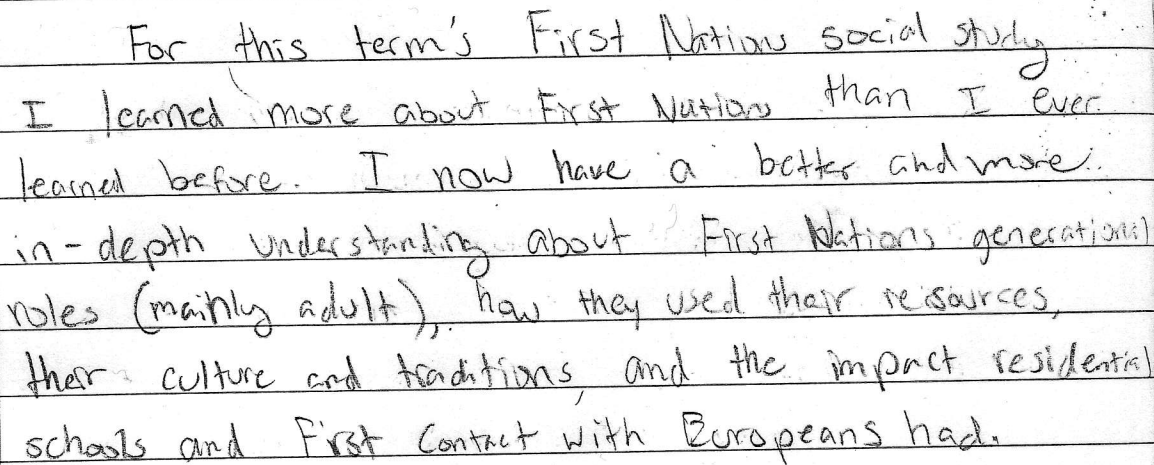 For this term's First Nations social study
I learned more about First Nations than I ever
learned before. I now have a better and more
in-depth understanding about First Nations generational
roles (mainly adult), how they used their resources,
their culture and traditions, and the impact residential
schools and First Contact with Europeans had.